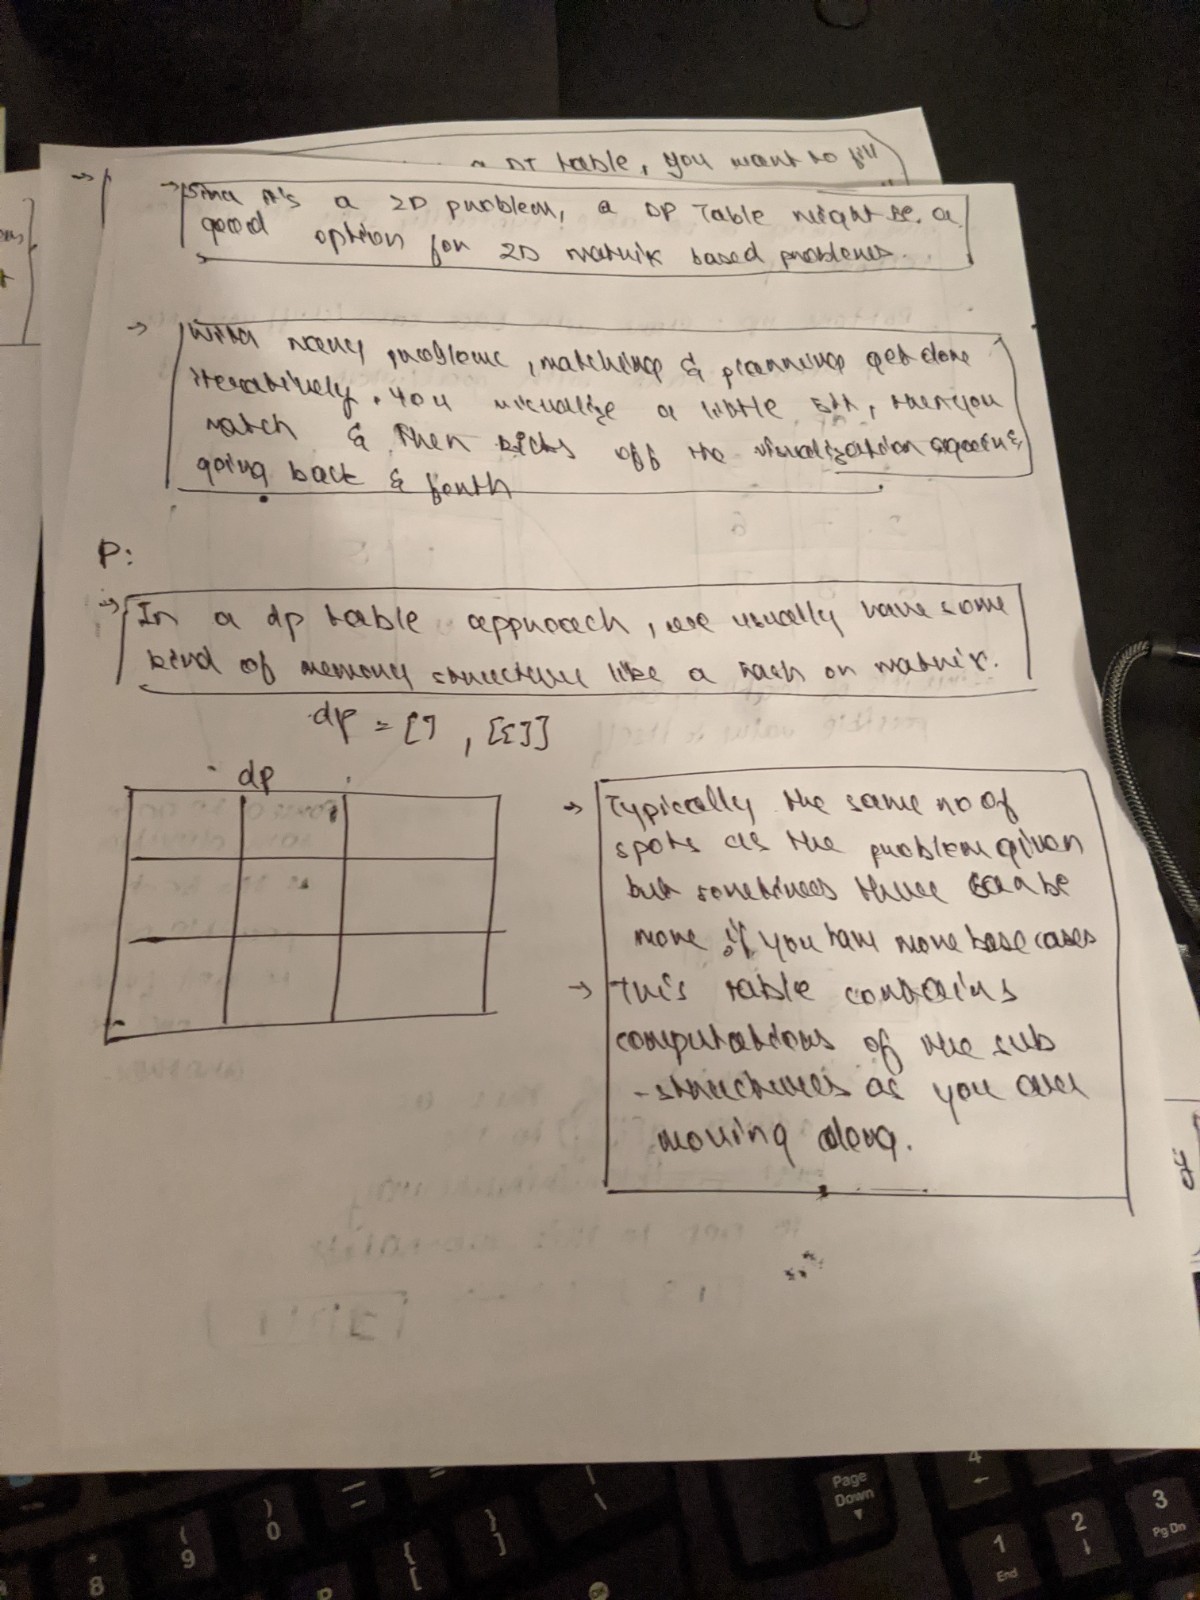 DP table, you want to fill
→ Since it's a 2D problem, a DP Table might be a
good option for 2D matrix based problems.
→ With many problems, matching & planning get done
iteratively. You visualize a little bit, then you
match & then kicks off the visualization again &
going back & forth
P:
→ In a dp table approach, we usually have some
kind of memory structure like a hash or matrix.
dp = [], [[]]
dp
→ Typically the same no of
spots as the problem given
but sometimes there can be
more if you have more base cases
→ This table contains
computations of the sub
-structures as you are
moving along.
Page
Down
4
(
9
)
0
*
8
}
]
{
[
1
End
2
3
Pg Dn